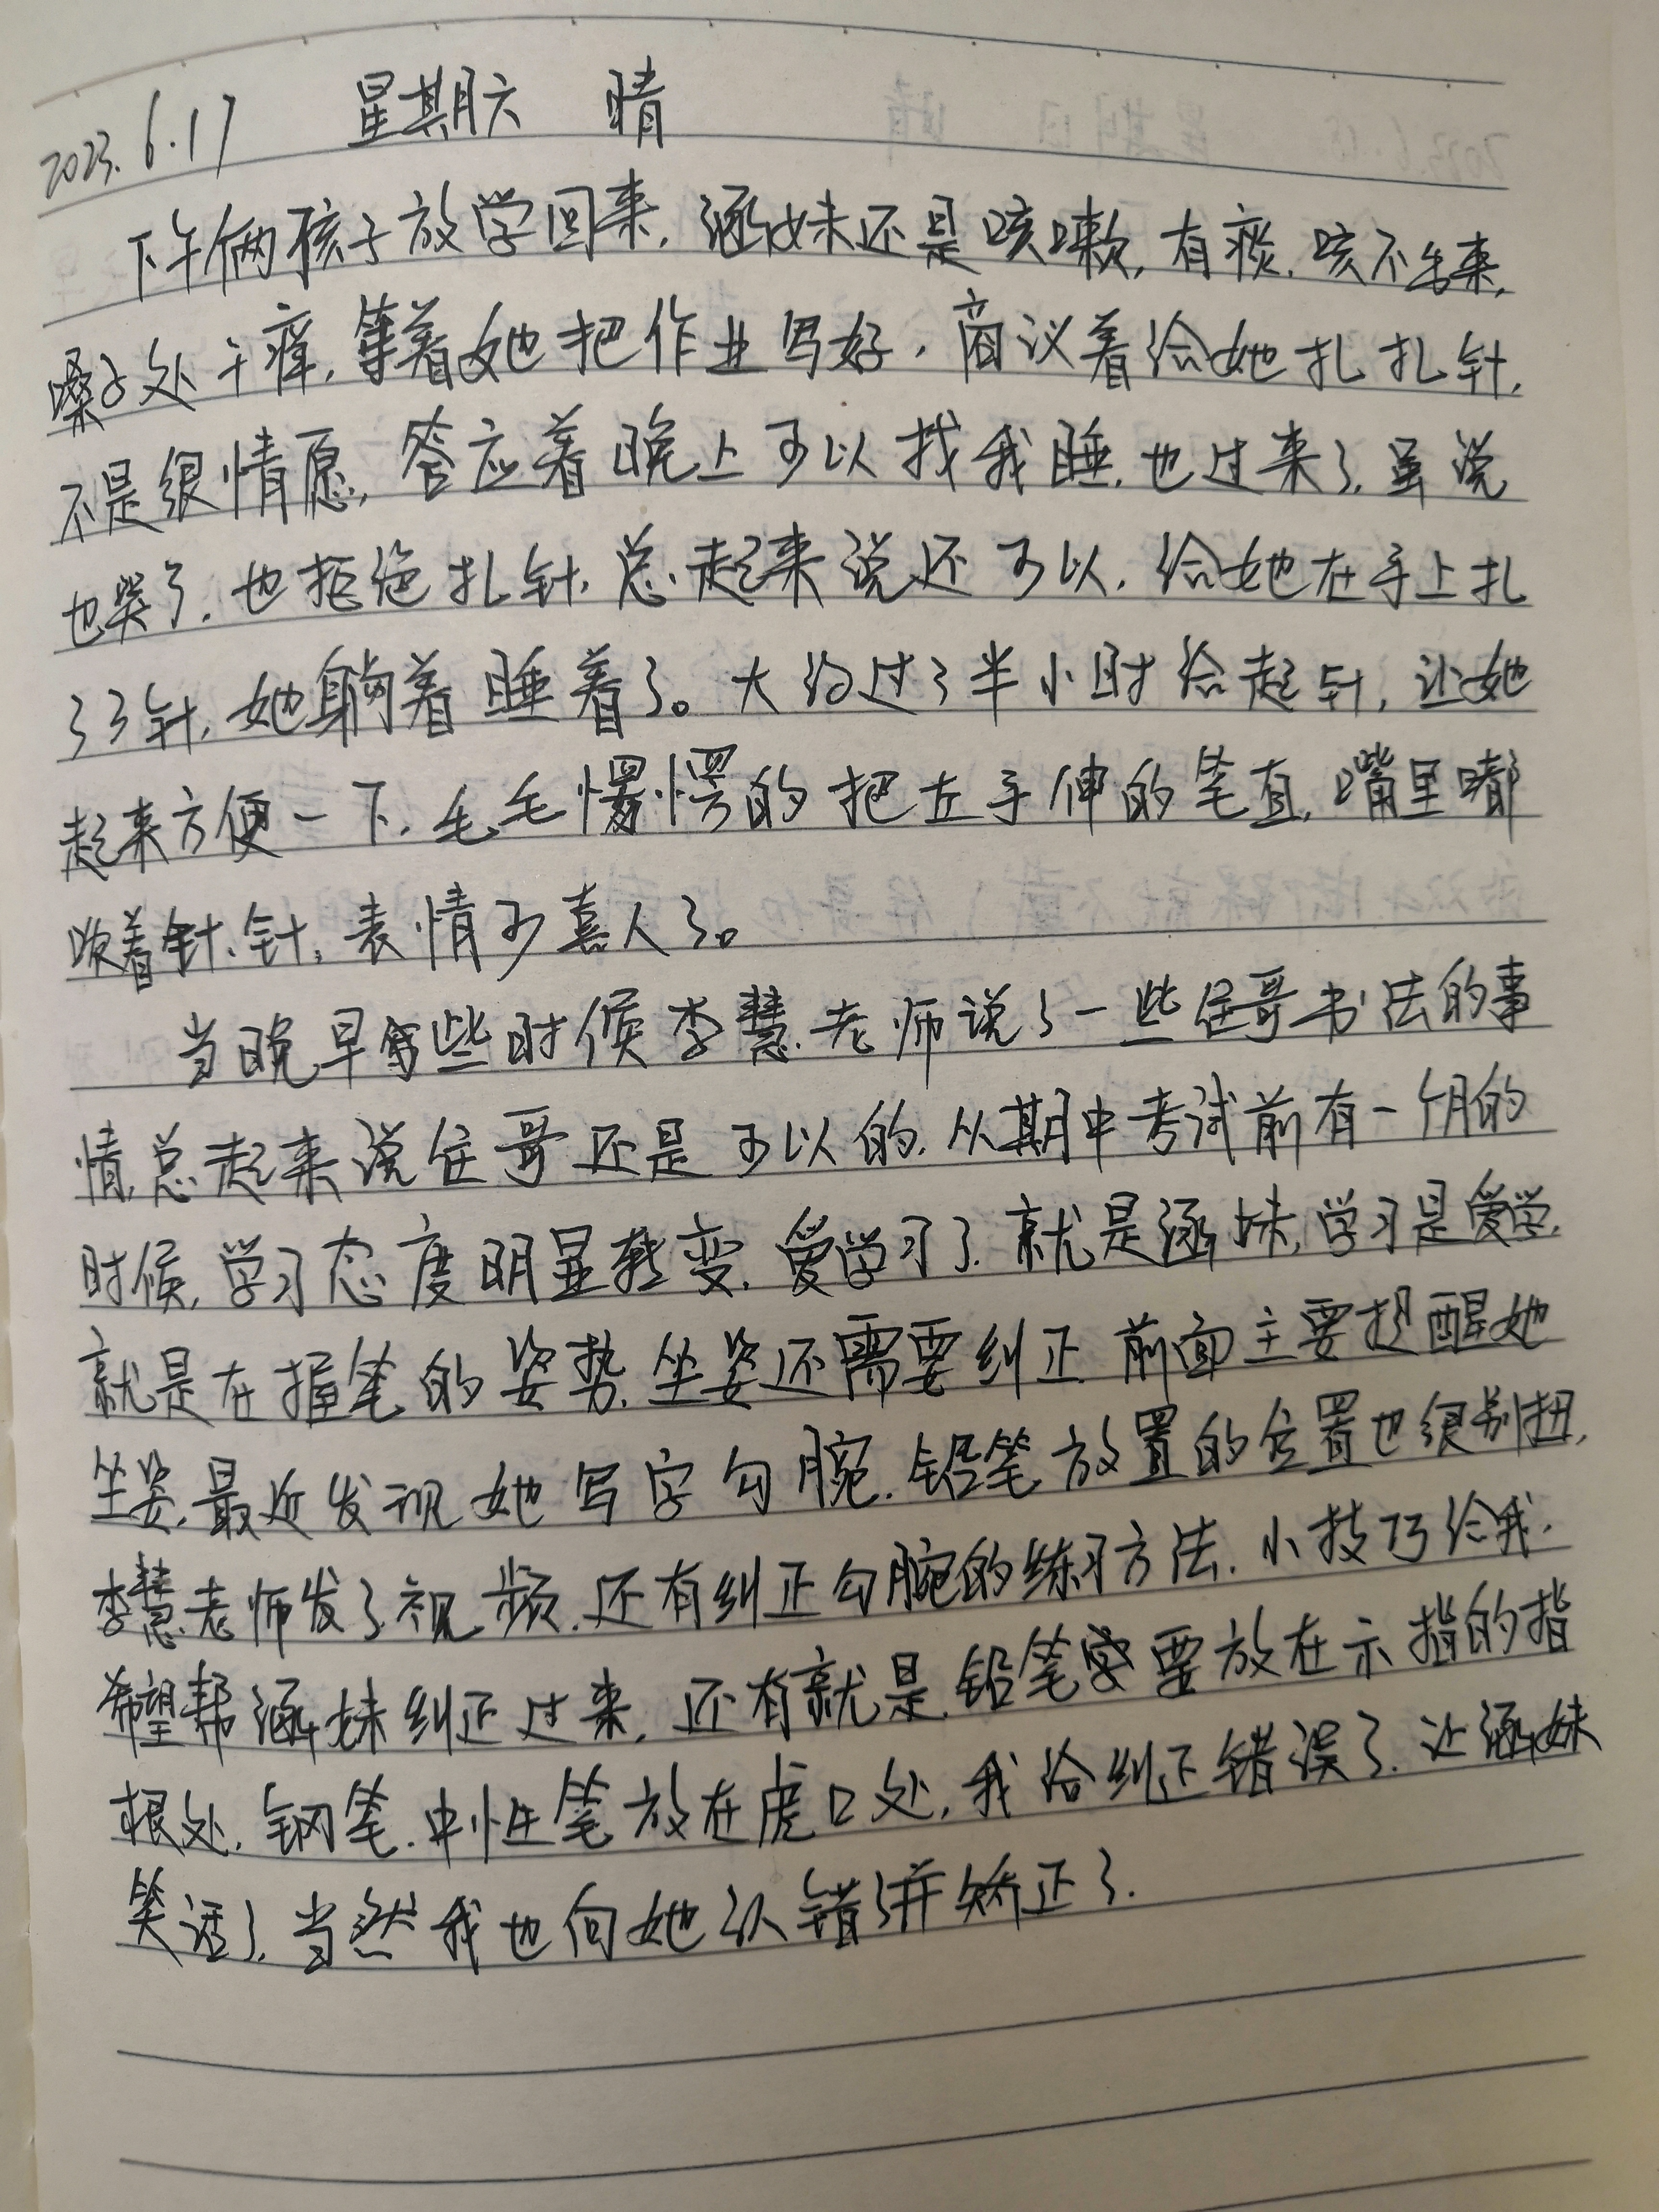 2023.6.17 星期六 晴
下午俩孩子放学回来,涵妹还是咳嗽,有痰,咳不出来,
嗓子处干痒,等着她把作业写好,商议着给她扎扎针,
不是很情愿,答应着晚上可以找我睡,也过来了,虽说
也哭了,也拒绝扎针,总起来说还可以,给她在手上扎
了3针,她躺着睡着了。大约过了半小时给起针,让她
起来方便一下,毛毛愣愣的把左手伸的笔直,嘴里嘟
哝着针、针,表情可喜人了。
当晚早些时候李慧老师说了一些佳哥书法的事
情,总起来说佳哥还是可以的,从期中考试前有一个月的
时候,学习态度明显转变,爱学习了,就是涵妹,学习是爱学,
就是在握笔的姿势,坐姿还需要纠正,前面主要提醒她
坐姿,最近发现她写字勾腕,铅笔放置的位置也很别扭,
李慧老师发了视频,还有纠正勾腕的练习方法,小技巧给我,
希望帮涵妹纠正过来,还有就是,铅笔要放在示指的指
根处,钢笔,中性笔放在虎口处,我给纠正错误了,让涵妹
笑话了,当然我也向她认错了并矫正了.